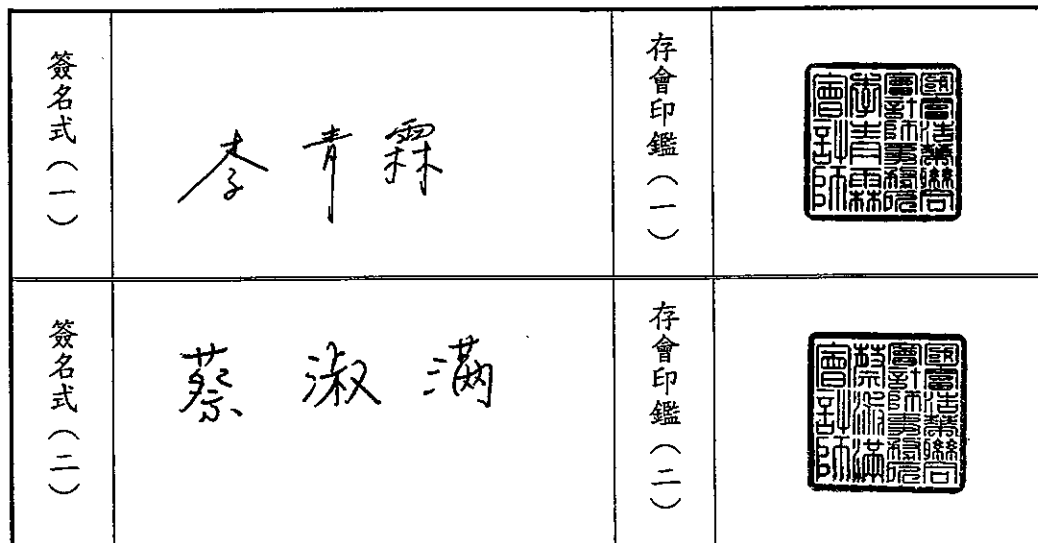 簽名式（一）
李青霖
存會印鑑（一）
國富浩華聯合
會計師事務所
李青霖
會計師
簽名式（二）
蔡淑滿
存會印鑑（二）
國富浩華聯合
會計師事務所
蔡淑滿
會計師